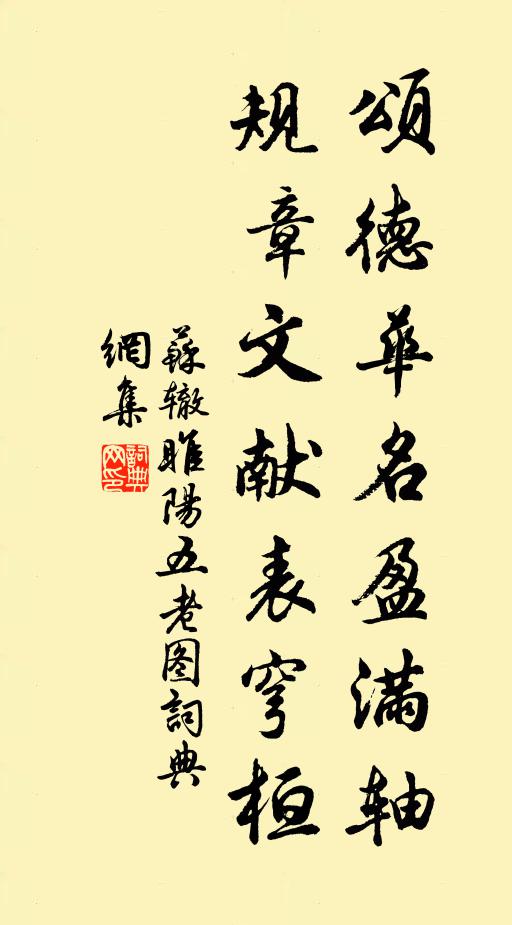 頌德華名盈滿軸
規章文献表穹桓
蘇辙睢陽五老图詞典
網集
詞典
网印